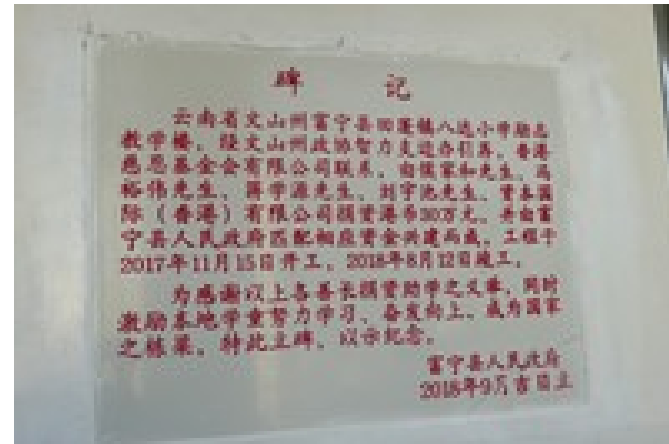 碑 记
云南省文山州富宁县田蓬镇八达小学励志
教学楼，经文山州政协智力支边办引荐，香港
慈恩基金会有限公司联系，由 家和先生、冯
裕伟先生、蒋学源先生、刘宇池先生、 国
际（香港）有限公司捐资港币30万元，并由富
宁县人民政府匹配相应资金共建而成，工程于
2017年11月15日开工，2018年8月12日竣工。
为感谢以上各善长捐资助学之义举，同时
激励本地学童努力学习，奋发向上，成为国家
之栋梁，特此立碑，以示纪念。
富宁县人民政府
2018年9月吉日立